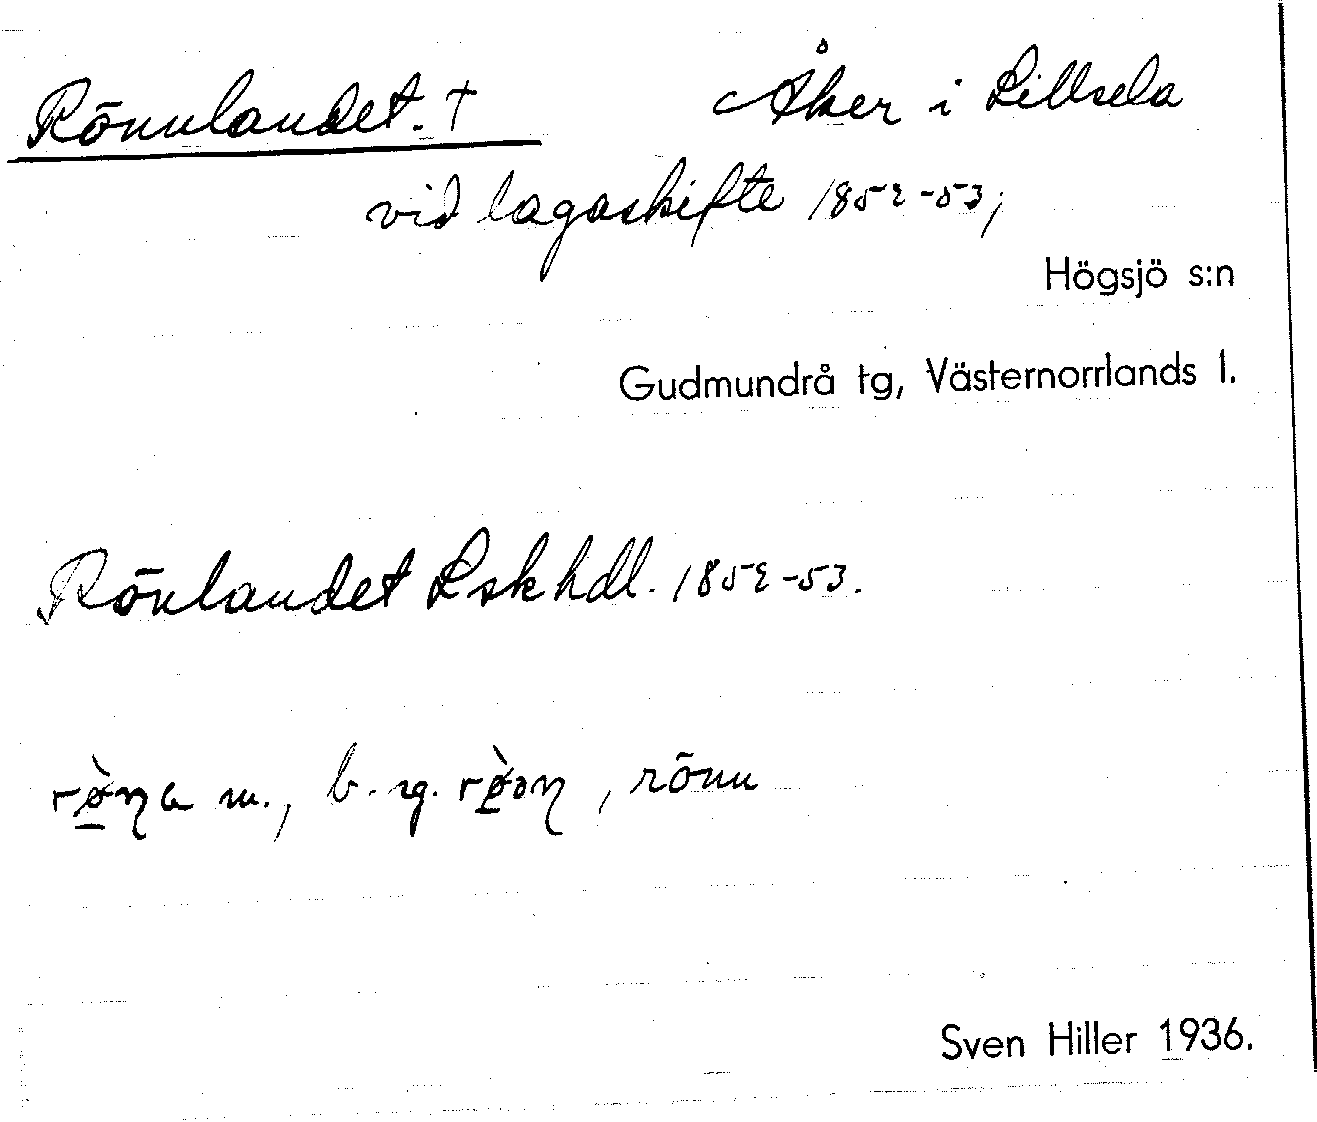 Rönnlandet. † Åker i Lillsela
vid lagaskifte 1852-53,
Högsjö s:n
Gudmundrå tg, Västernorrlands l.
Rönlandet Lskhdl. 1852-53.
m., b. sg. , rönn
Sven Hiller 1936.